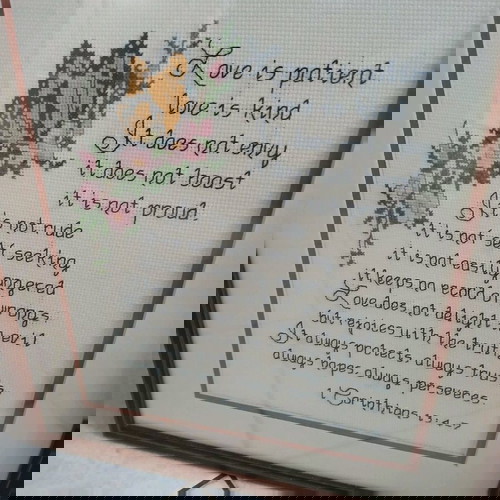 Love is patient
love is kind
It does not envy
it does not boast
it is not proud
It is not rude
it is not self seeking
it is not easily angered
it keeps no record of wrongs
Love does not delight in evil
but rejoices with the truth
It always protects always trusts
always hopes always perseveres
1 Corinthians 13:4-7